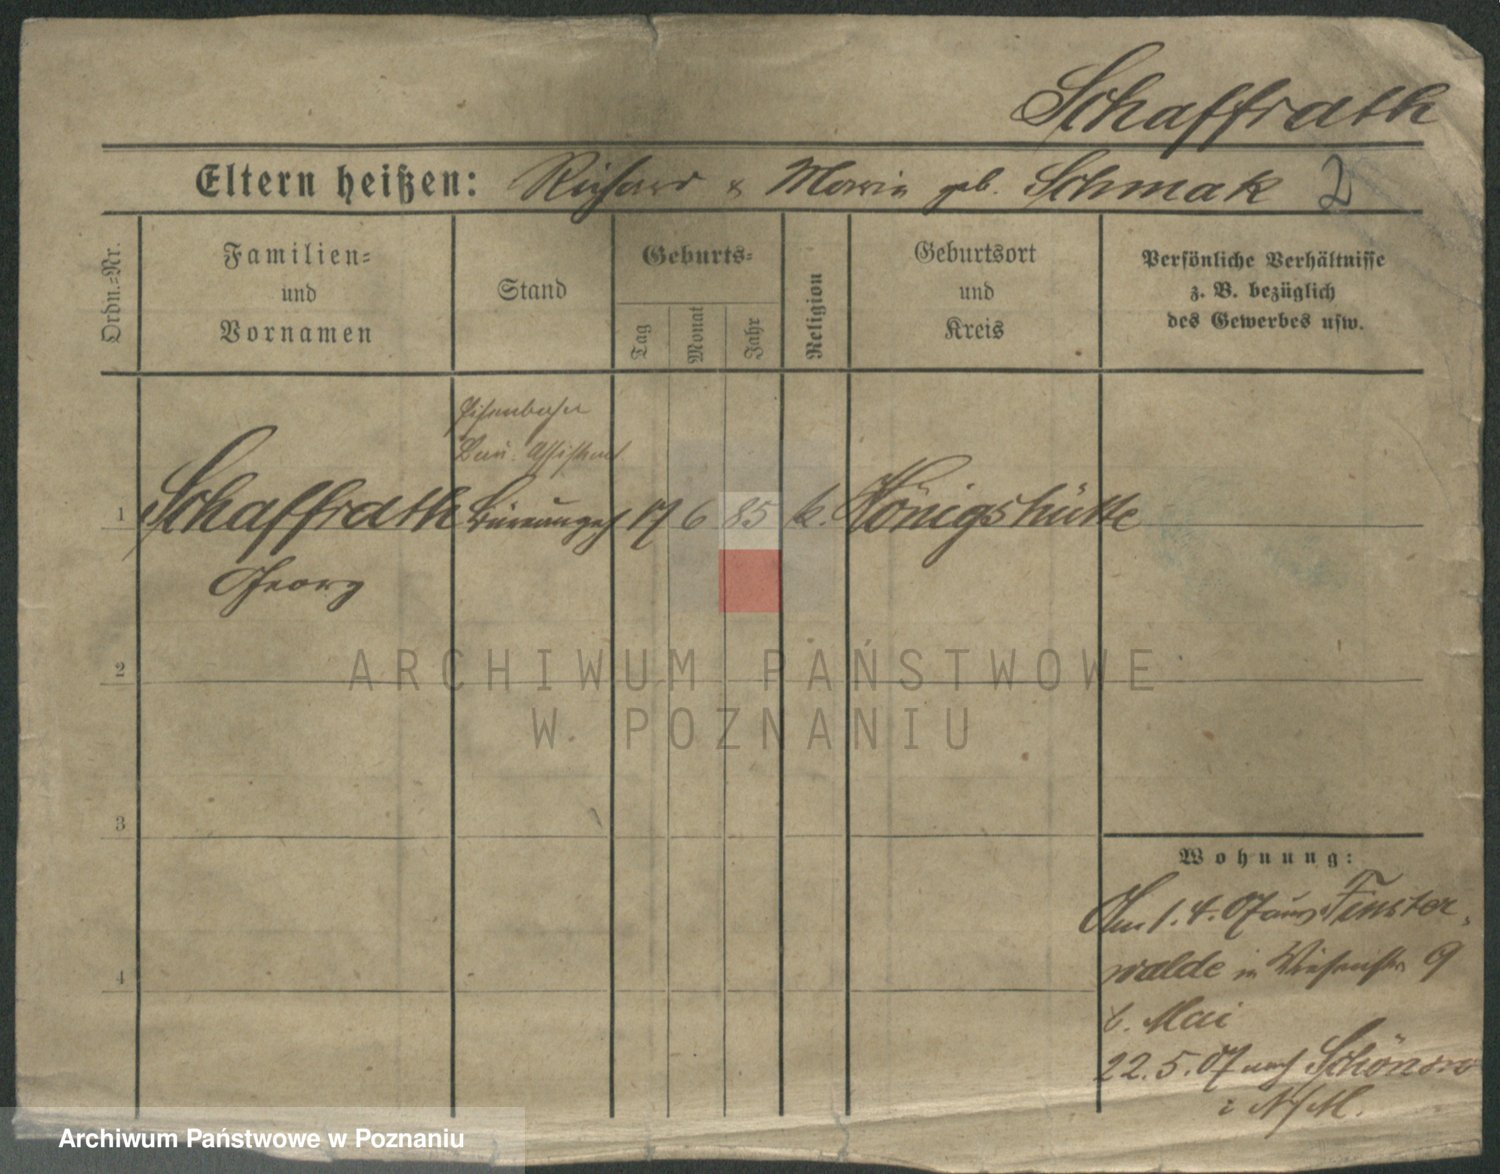 Schaffrath
Eltern heißen: Richard & Maria geb. Schmak 2
Ordn.-Nr.
Familien-
und
Vornamen
Stand
Geburts-
Tag
Monat
Jahr
Religion
Geburtsort
und
Kreis
Persönliche Verhältnisse
z. B. bezüglich
des Gewerbes usw.
Eisenbahn
Assistent
1 Schaffrath Büreaugeh 17 6 85 k. Königshütte
Georg
2
ARCHIWUM PAŃSTWOWE
W POZNANIU
3
4
Wohnung:
Am 1.4.07 aus Finster
walde in 9
b. Mai
22.5.07 nach
Archiwum Państwowe w Poznaniu